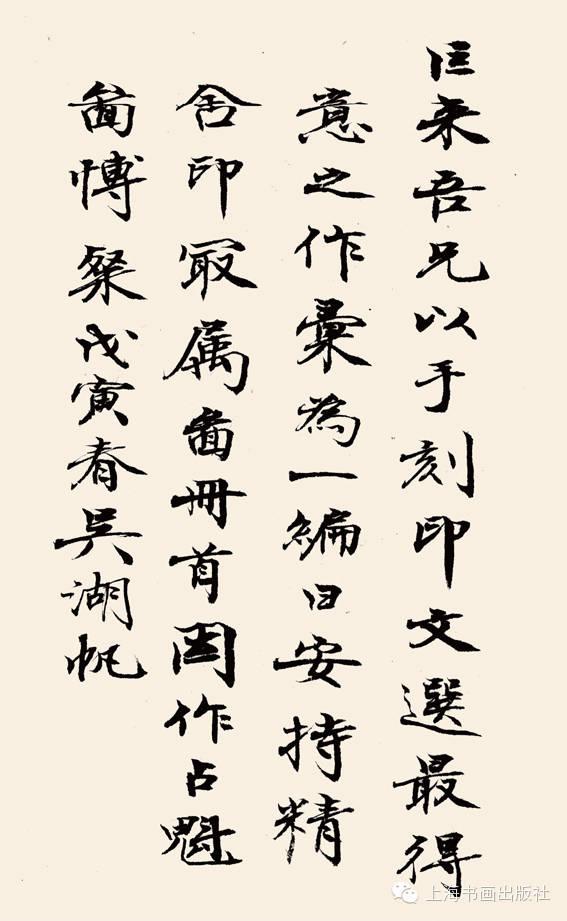 巨来吾兄以手刻印文選最得
意之作彙為一編曰安持精
舍印冣属啚冊首因作占魁
啚愽粲戊寅春吳湖帆
上海书画出版社